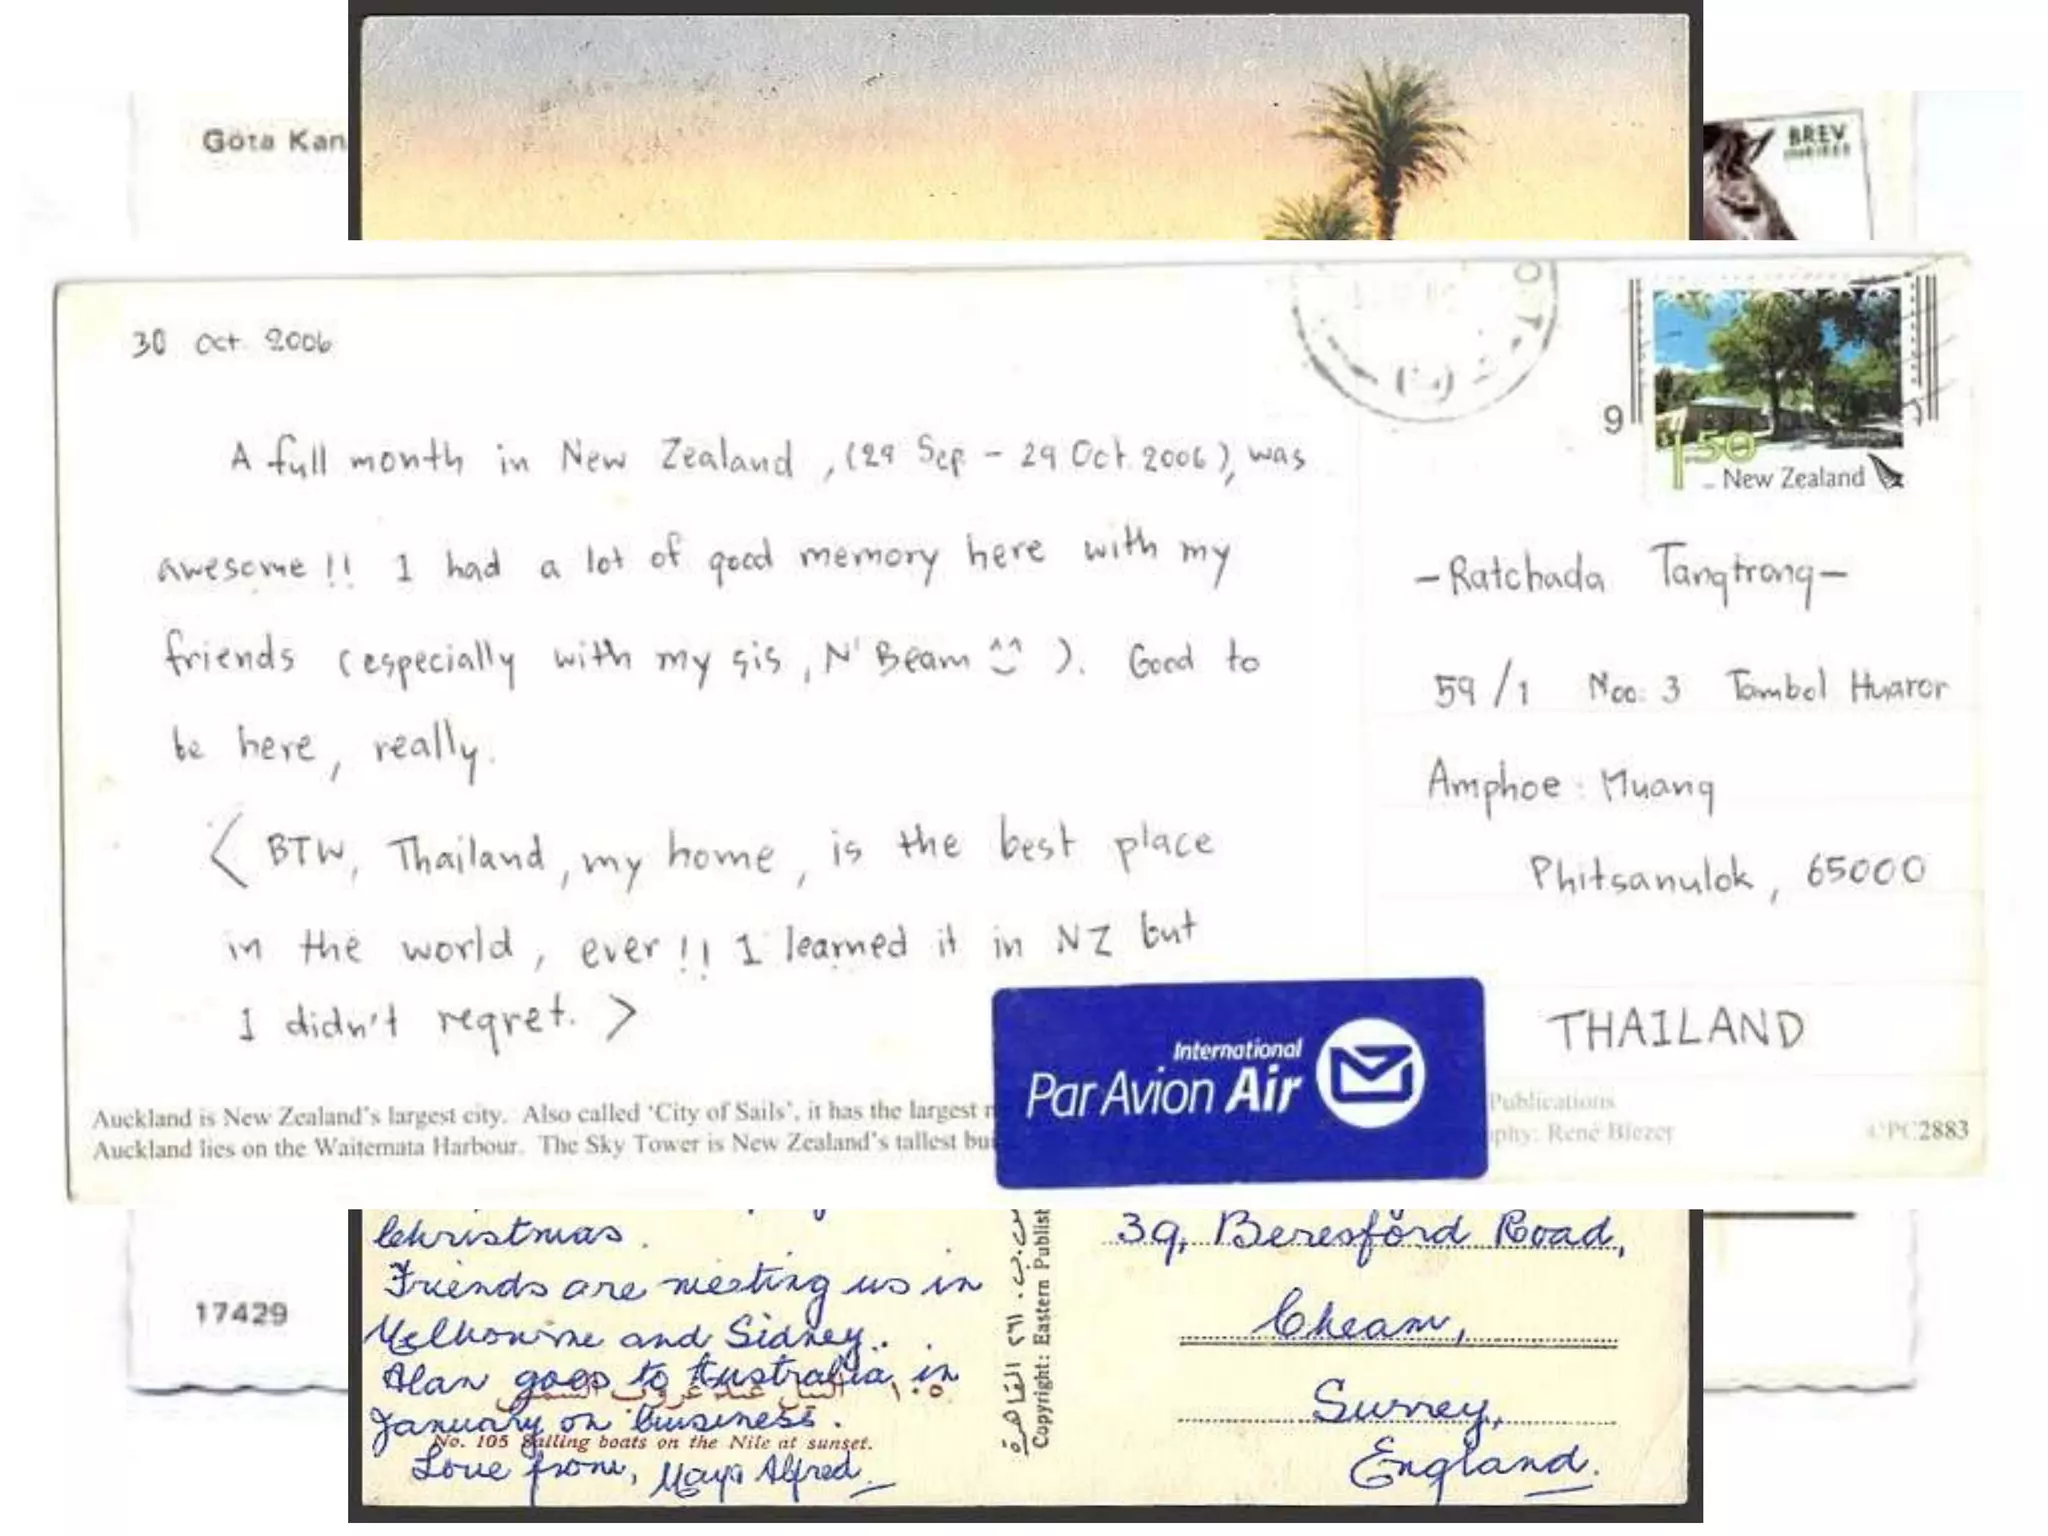 Göta Kan
BREV
INRIKES
30 Oct 2006
A full month in New Zealand, (29 Sep - 29 Oct 2006), was
awesome!! I had a lot of good memory here with my
friends (especially with my sis, N' Beam ^^). Good to
be here, really.
< BTW, Thailand, my home, is the best place
in the world, ever!! I learned it in NZ but
I didn't regret. >
9
1.50
New Zealand
-Ratchada Tangtrong-
59/1 Moo: 3 Tambol Huaror
Amphoe: Muang
Phitsanulok, 65000
THAILAND
International
Par Avion Air
Auckland is New Zealand's largest city. Also called 'City of Sails', it has the largest
Auckland lies on the Waitemata Harbour. The Sky Tower is New Zealand's tallest bui
Publications
phy: René Biezer
CPC2883
17429
Christmas.
Friends are meeting us in
Melbourne and Sidney.
Alan goes to Australia in
January on business.
النيل عند غروب الشمس ١٠٥
No. 105 Sailing boats on the Nile at sunset.
Love from, Maya Alfred
س.ت. ٢٦١ القاهرة
Copyright: Eastern Publish
39, Beresford Road,
Cheam,
Surrey,
England.